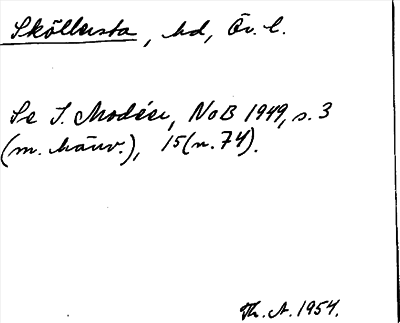 Sköllersta, hd, Ör. l.
Se I. Modéer, NoB 1949, s. 3
(m. hänv.), 15 (n. 74).
Th. A. 1954.